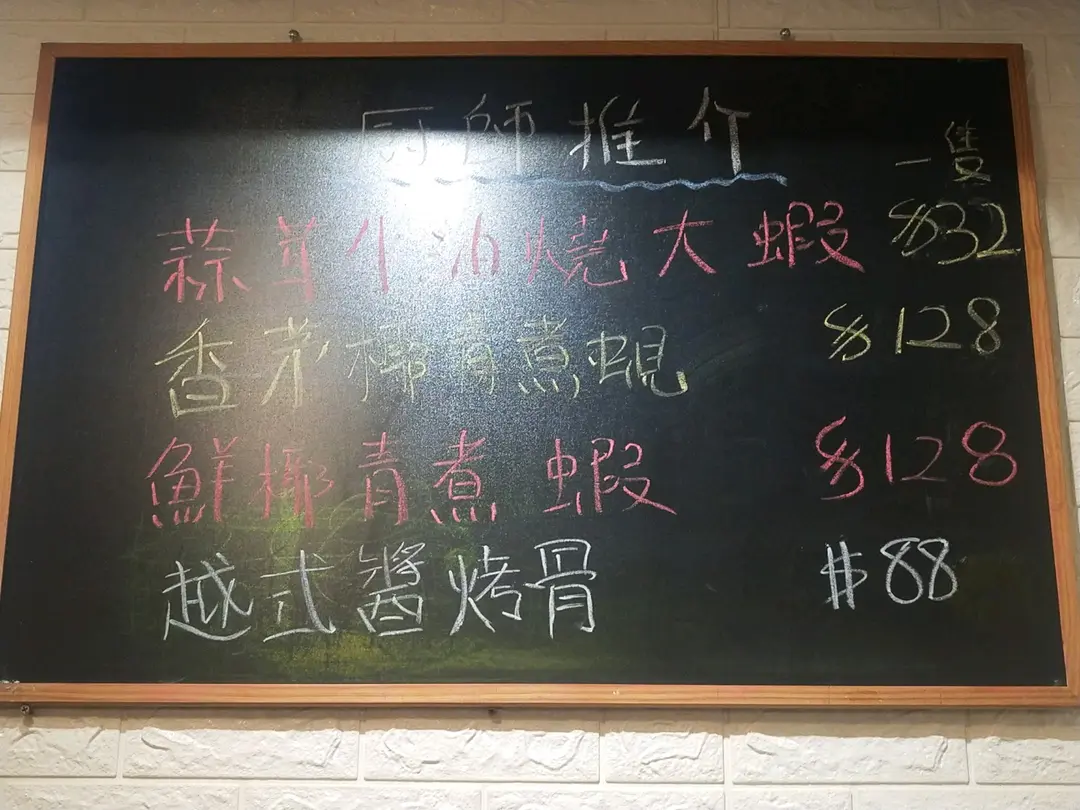 厨師推介
一隻
蒜茸牛油燒大蝦 $32
香茅椰青煮蜆 $128
鮮椰青煮蝦 $128
越式醬烤骨 $88